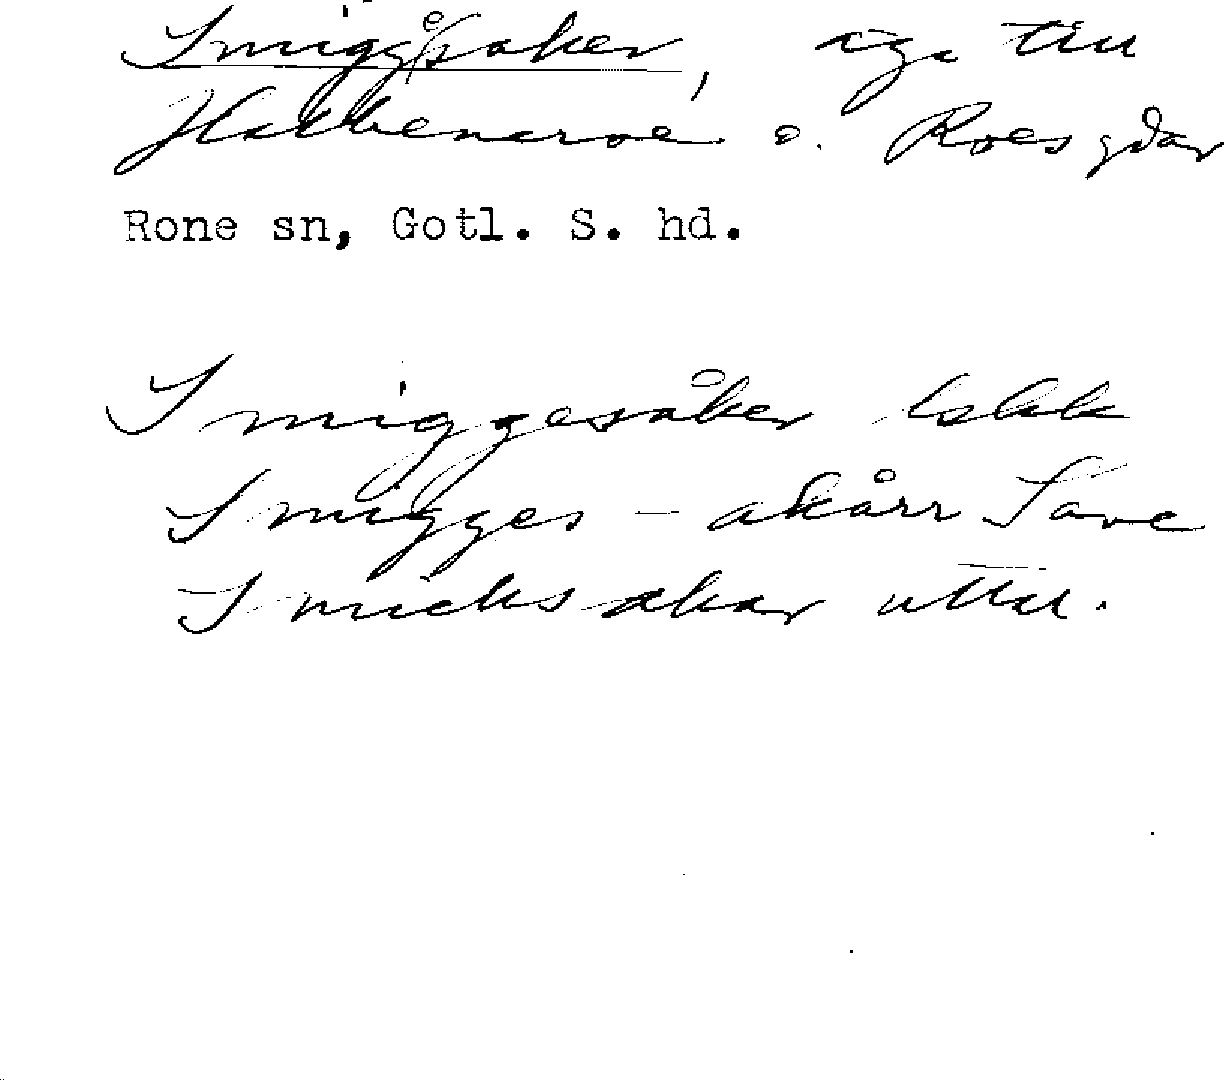 Smiggesåker, äga till
Hallbenarve o. Roes gdar
Rone sn, Gotl. S. hd.
Smiggesåker lskk
Smigges - akårr Save
Smicksakar uttal.